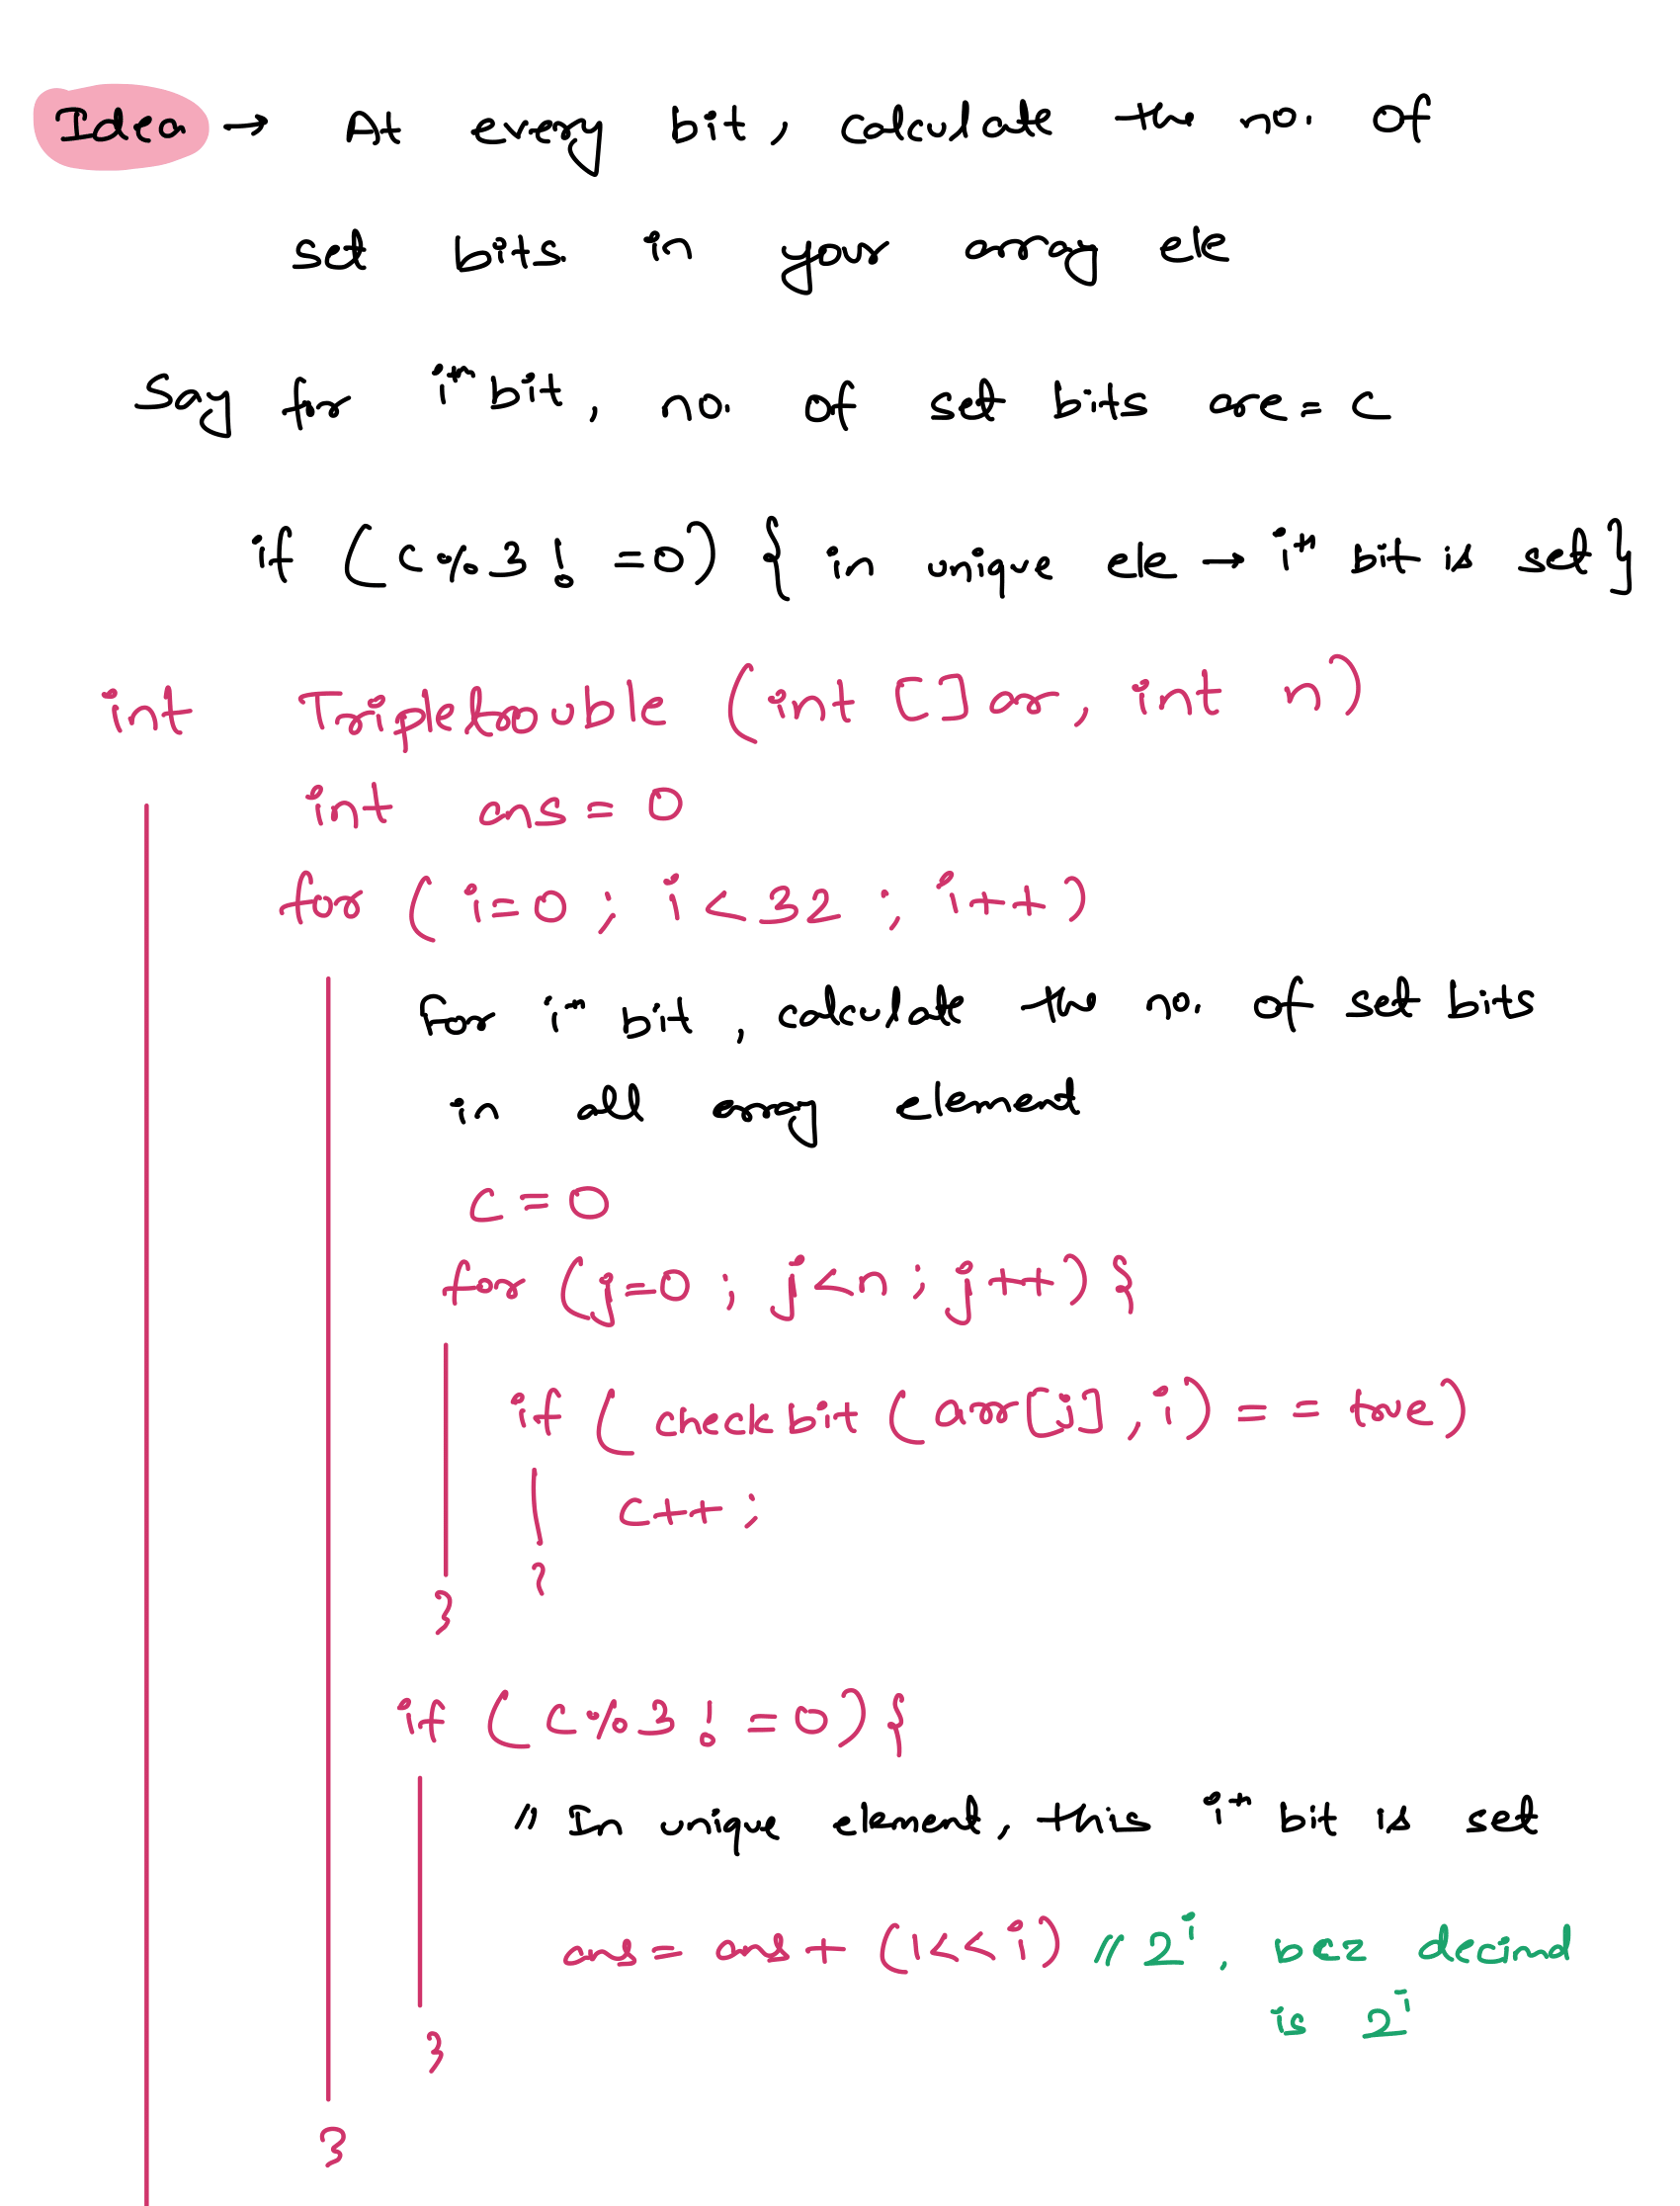 Idea → At every bit, calculate the no. of
set bits in your array ele
Say for ith bit, no. of set bits are = c
if (c%3! =0) { in unique ele → ith bit is set}
int Tripletrouble (int [] arr, int n)
int ans = 0
for (i=0; i<32; i++)
For ith bit, calculate the no. of set bits
in all array element
c = 0
for (j=0; j<n; j++) {
if (checkbit (arr[j], i) == true)
c++;
}
}
if (c%3! =0){
// In unique element, this ith bit is set
ans = ans + (1<<i) // 2^i, bcz decimal
is 2^i
}
}